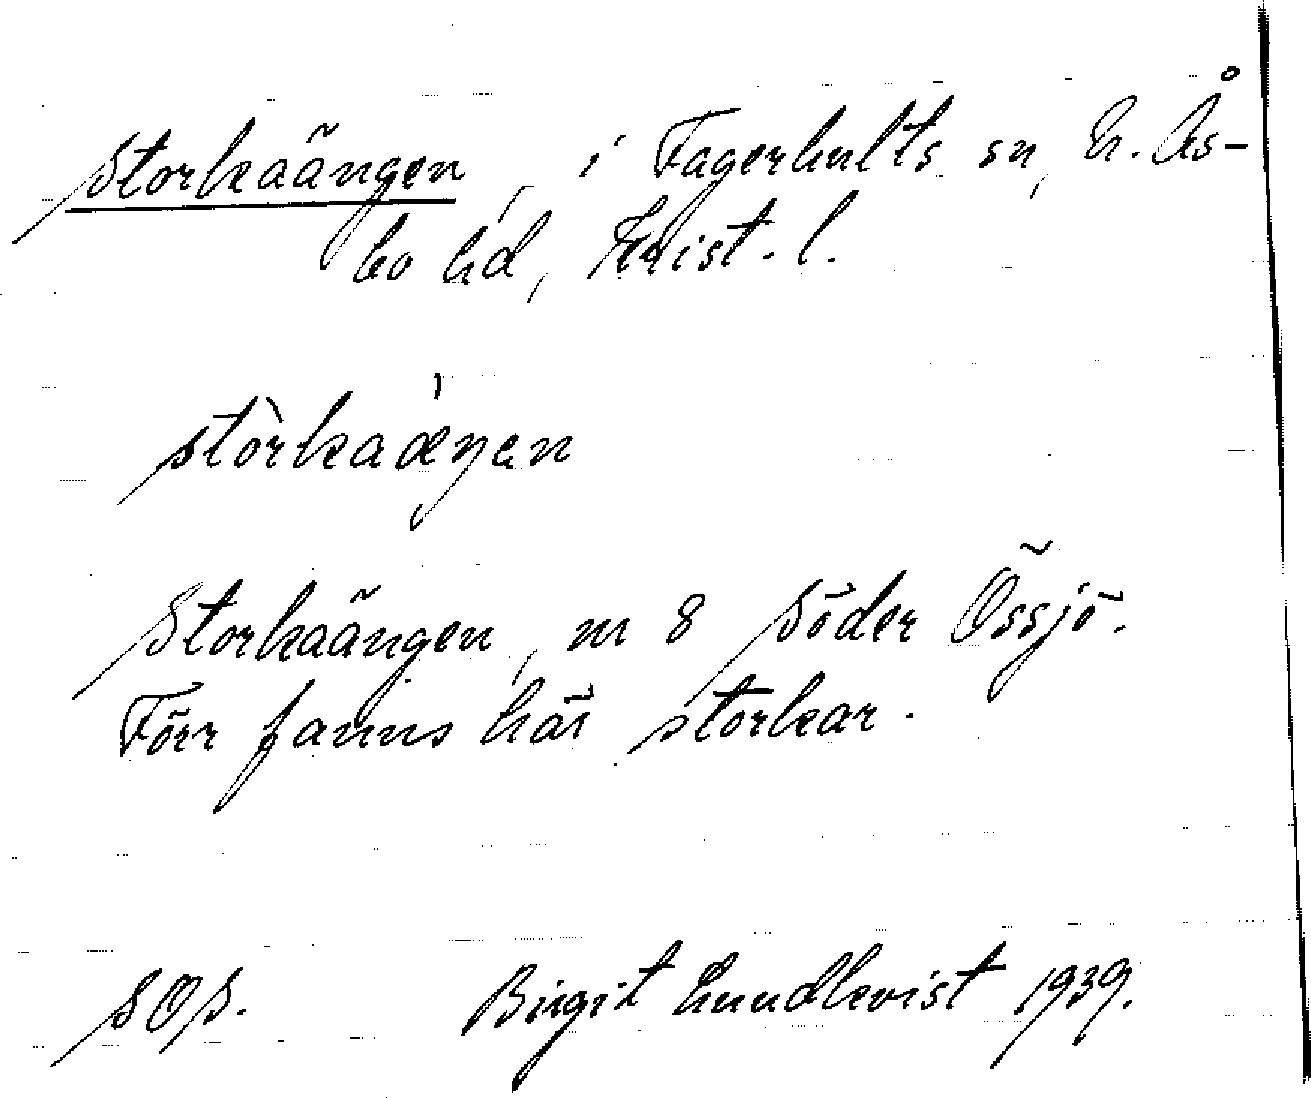 Storkaängen, i Fagerhults sn, N. Ås-
bo hd, Krist. l.
stòrkaæ̀ŋan
Storkaängen, nr 8 Söder Össjö.
Förr fanns här storkar.
SOS. Birgit Lundkvist 1939.